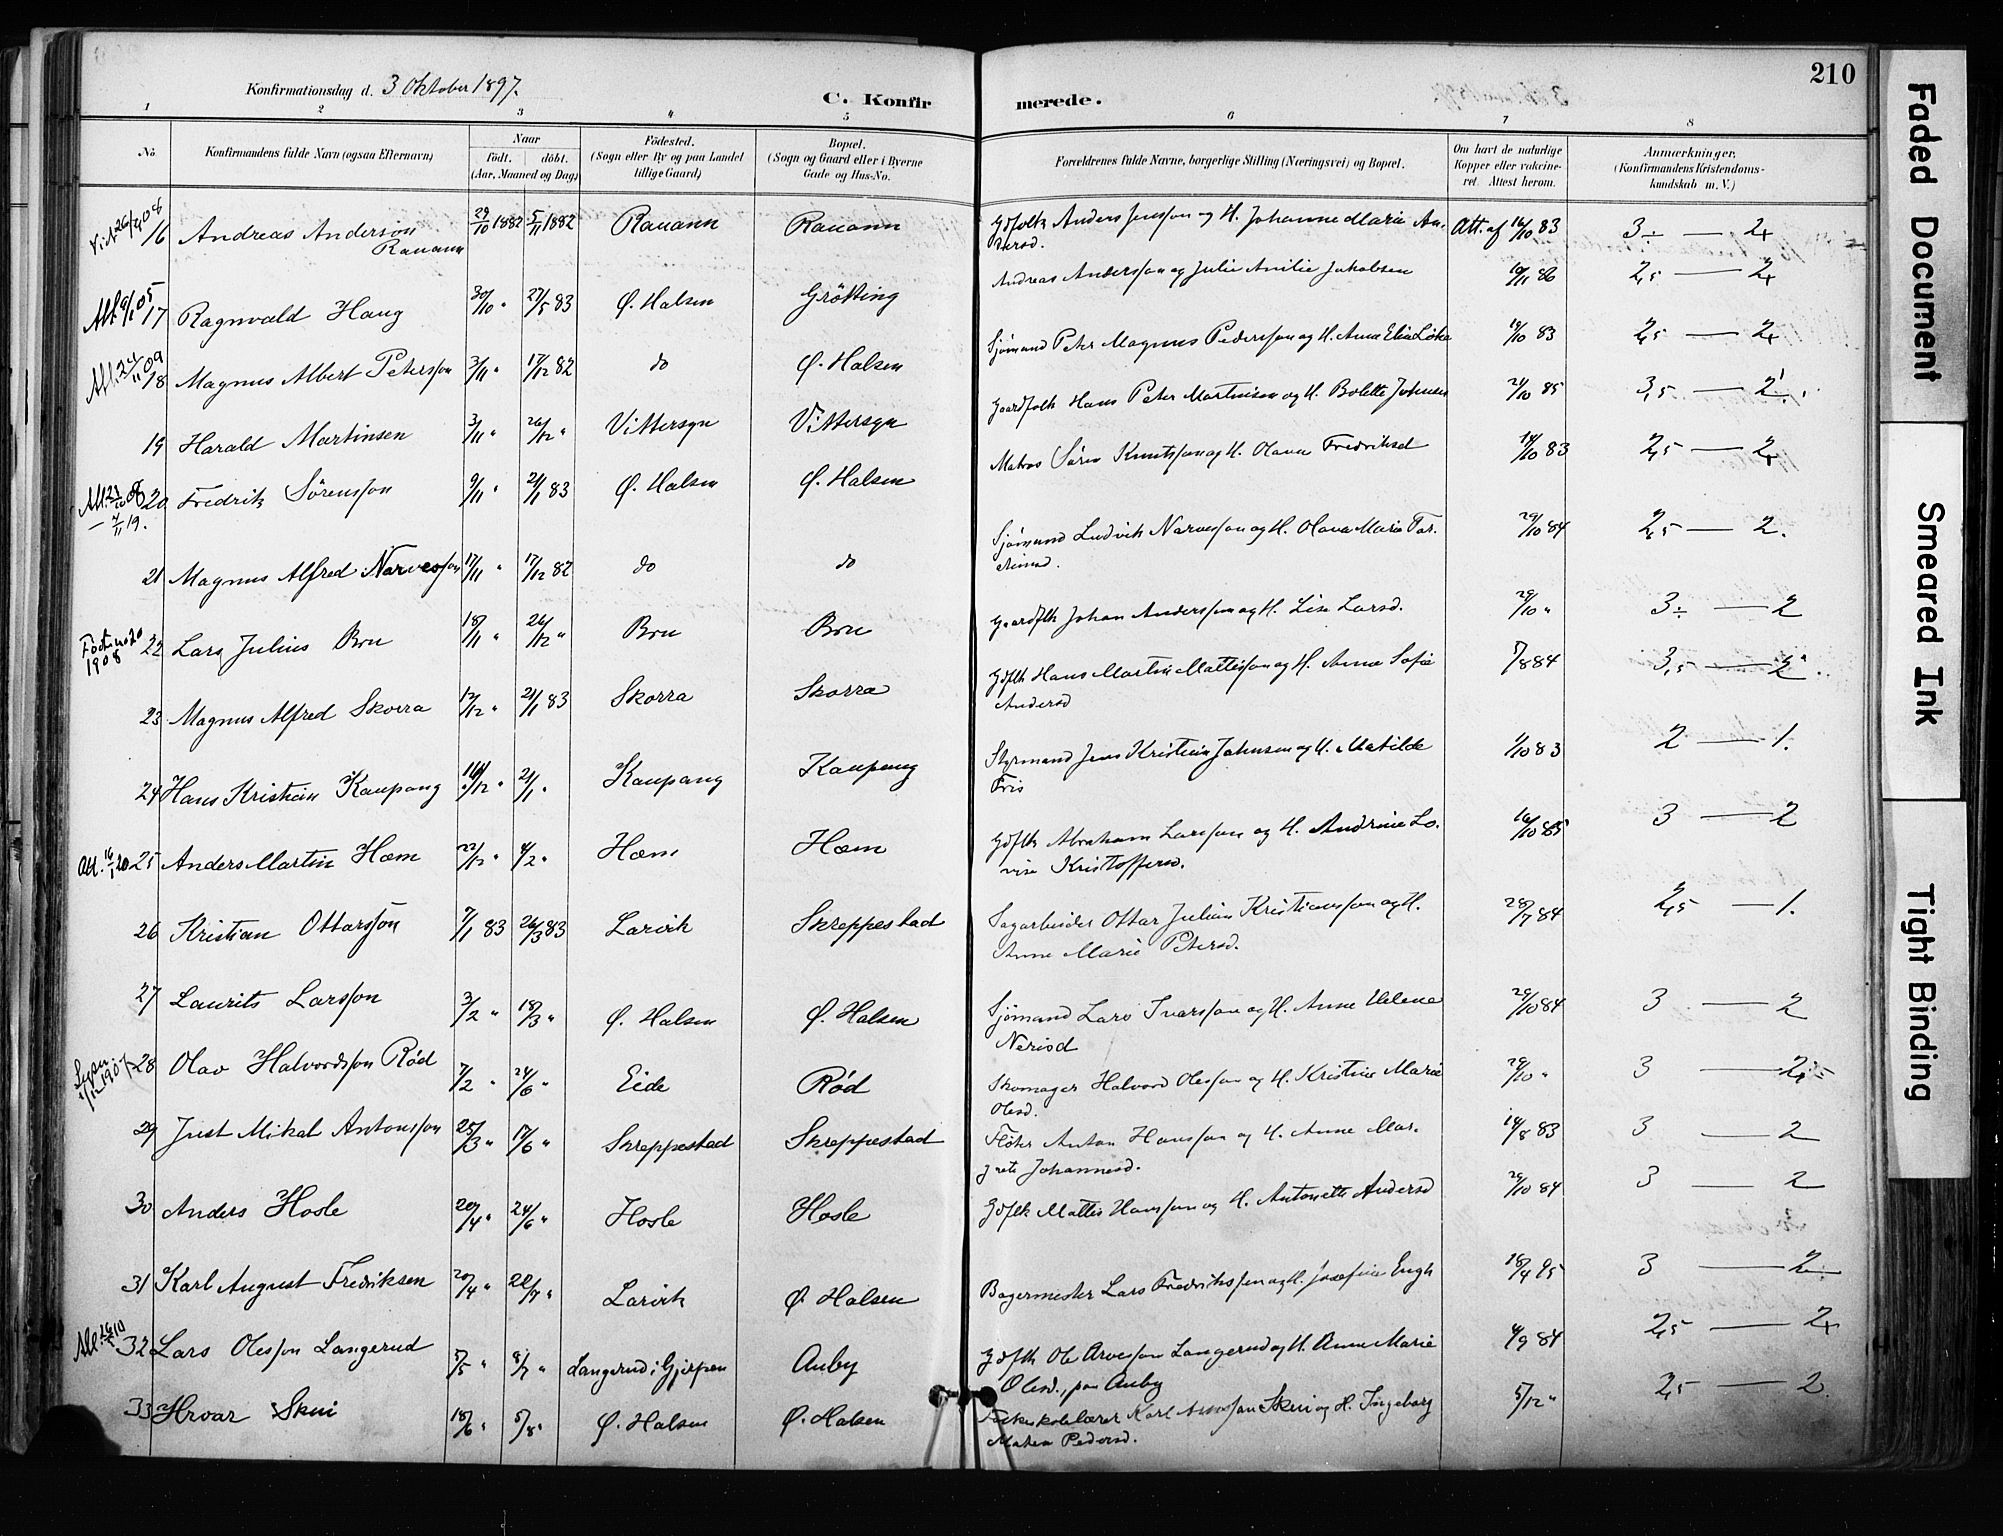 Konfirmationsdag d. 3 Oktober 1897.
C. Konfir merede.
210
1 2 3 4 5 6 7 8
No
Konfirmandens fulde Navn (ogsaa Efternavn)
Naar
født. döbt.
(Aar, Maaned og Dag)
Födested.
(Sogn eller By og paa Landet
tillige Gaard)
Bopæl.
(Sogn og Gaard eller i Byerne
Gade og Hus-No.
Forældrenes fulde Navne, borgerlige Stilling (Næringsvei) og Bopæl.
Om havt de naturlige
Kopper eller vakcine-
ret. Attest herom.
Anmærkninger,
(Konfirmandens Kristendoms-
kundskab m. V.)
16 Andreas Anderson 29/10 1882 5/11 1882 Rauann Rauann Gdfolk Anders Jensson og H. Johanne Marie An- Att. af 16/10 83 3÷ — 2+
Rauann dersd.
17 Ragnvald Haug 30/10 " 27/5 83 Ø. Halsen Grötting Andreas Andersson og Julie Amilie Jakobsen 19/11 86 2,5 — 2+
18 Magnus Albert Petersson 3/11 " 17/12 82 do Ø. Halsen Sjømand Peter Magnus Pedersson og H. Anne Elia 19/10 83 2,5 — 2+
19 Harald Martinsen 3/11 " 26/12 " Vittersyn Vittersyn Gaardfolk Hans Peter Martinsen og H. Bolette Johnsen 21/10 85 3,5 — 2
20 Fredrik Sørensson 9/11 " 21/1 83 Ø. Halsen Ø. Halsen Matros Sören Knutsson og H. Olava Fredriksd 19/10 83 2,5 — 2+
21 Magnus Alfred Narvesson 17/11 " 17/12 82 do do Sjømand Ludvik Narvesson og H. Olava Marie Tor- 29/10 84 2,5 — 2.
22 Lars Julius Bru 18/11 " 26/12 " Bru Bru Gaardflk Johan Andersson og H. Lise Larsd. 29/10 " 3÷ — 2
Født no 20
1908
23 Magnus Alfred Skorra 12/12 " 21/1 83 Skorra Skorra Gdflk Hans Martin Mattisson og H. Anne Sofie 5/8 84 3,5 — 2
Andersd
24 Hans Kristian Kaupang 16/12 " 21/1 " Kaupang Kaupang Styrmand Jens Kristian Johnsen og H. Matilde 1/10 83 2 — 1.
Fris
25 Anders Martin Hæm 22/12 " 4/2 " Hæm Hæm Gdflk Abraham Larsson og H. Andrine Lo- 16/10 85 3 — 2
vise Kristoffersd.
26 Kristian Ottarsson 7/1 83 26/3 83 Larvik Skreppestad Sagarbeider Ottar Julius Kristiansson og H. 28/7 84 2,5 — 1.
Anne Marie Petersd.
27 Laurits Larsson 3/2 " 18/3 " Ø. Halsen Ø. Halsen Sjømand Lars Ivarsson og H. Anne Helene 29/10 84 3 — 2
Nerisd
28 Olav Halvordsson Rød 7/2 " 24/6 " Eide Rød Skomager Halvord Olesson og H. Kristine Marie 29/10 " 3 — 2
Olesd.
29 Just Mikal Antonsson 25/3 " 17/6 " Skreppestad Skreppestad Fløter Anton Hansson og H. Anne Mar- 14/8 83 3 — 2
grete Johannesd.
30 Anders Hosle 20/4 " 24/6 " Hosle Hosle Gdflk Mattis Hansson og H. Antonette Andersd 29/10 84 3 — 2
31 Karl August Fredriksen 20/4 " 22/7 " Larvik Ø. Halsen Bagermester Lars Fredriksson og H. Josefine Engh 18/4 95 3 — 2
32 Lars Olesson Langerud 5/5 " 8/7 " Langerud i Gjerpen Auby Gdflk Ole Arvesson Langerud og H. Anne Marie 4/9 84 2,5 — 2+
Olesd., paa Auby
33 Hroar Skui 18/6 " 5/8 " Ø. Halsen Ø. Halsen Folkeskolelærer Karl Arnesson Skui og H. Ingeborg 5/12 " 2,5 — 2.
Matea Pedersd.
Faded Document
Smeared Ink
Tight Binding